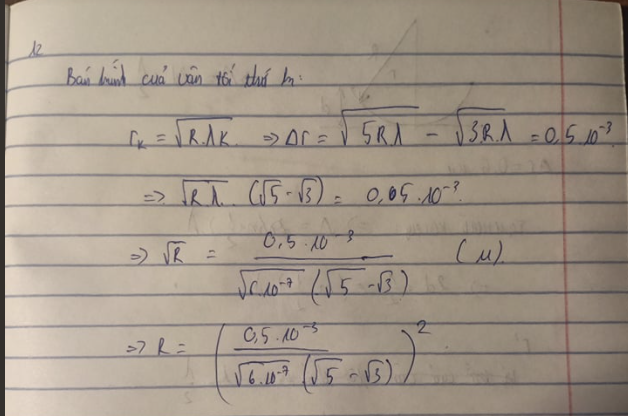 12
Bán kính cuả vân tối thứ k:
r_K = √R.λK. => Δr = √5Rλ - √3.R.λ = 0,5.10⁻³
=> √Rλ. (√5-√3) = 0,05.10⁻³.
=> √R = 0,5.10⁻³ / √6.10⁻⁷ (√5-√3) (M).
=> R = (0,5.10⁻³ / √6.10⁻⁷ (√5-√3))²